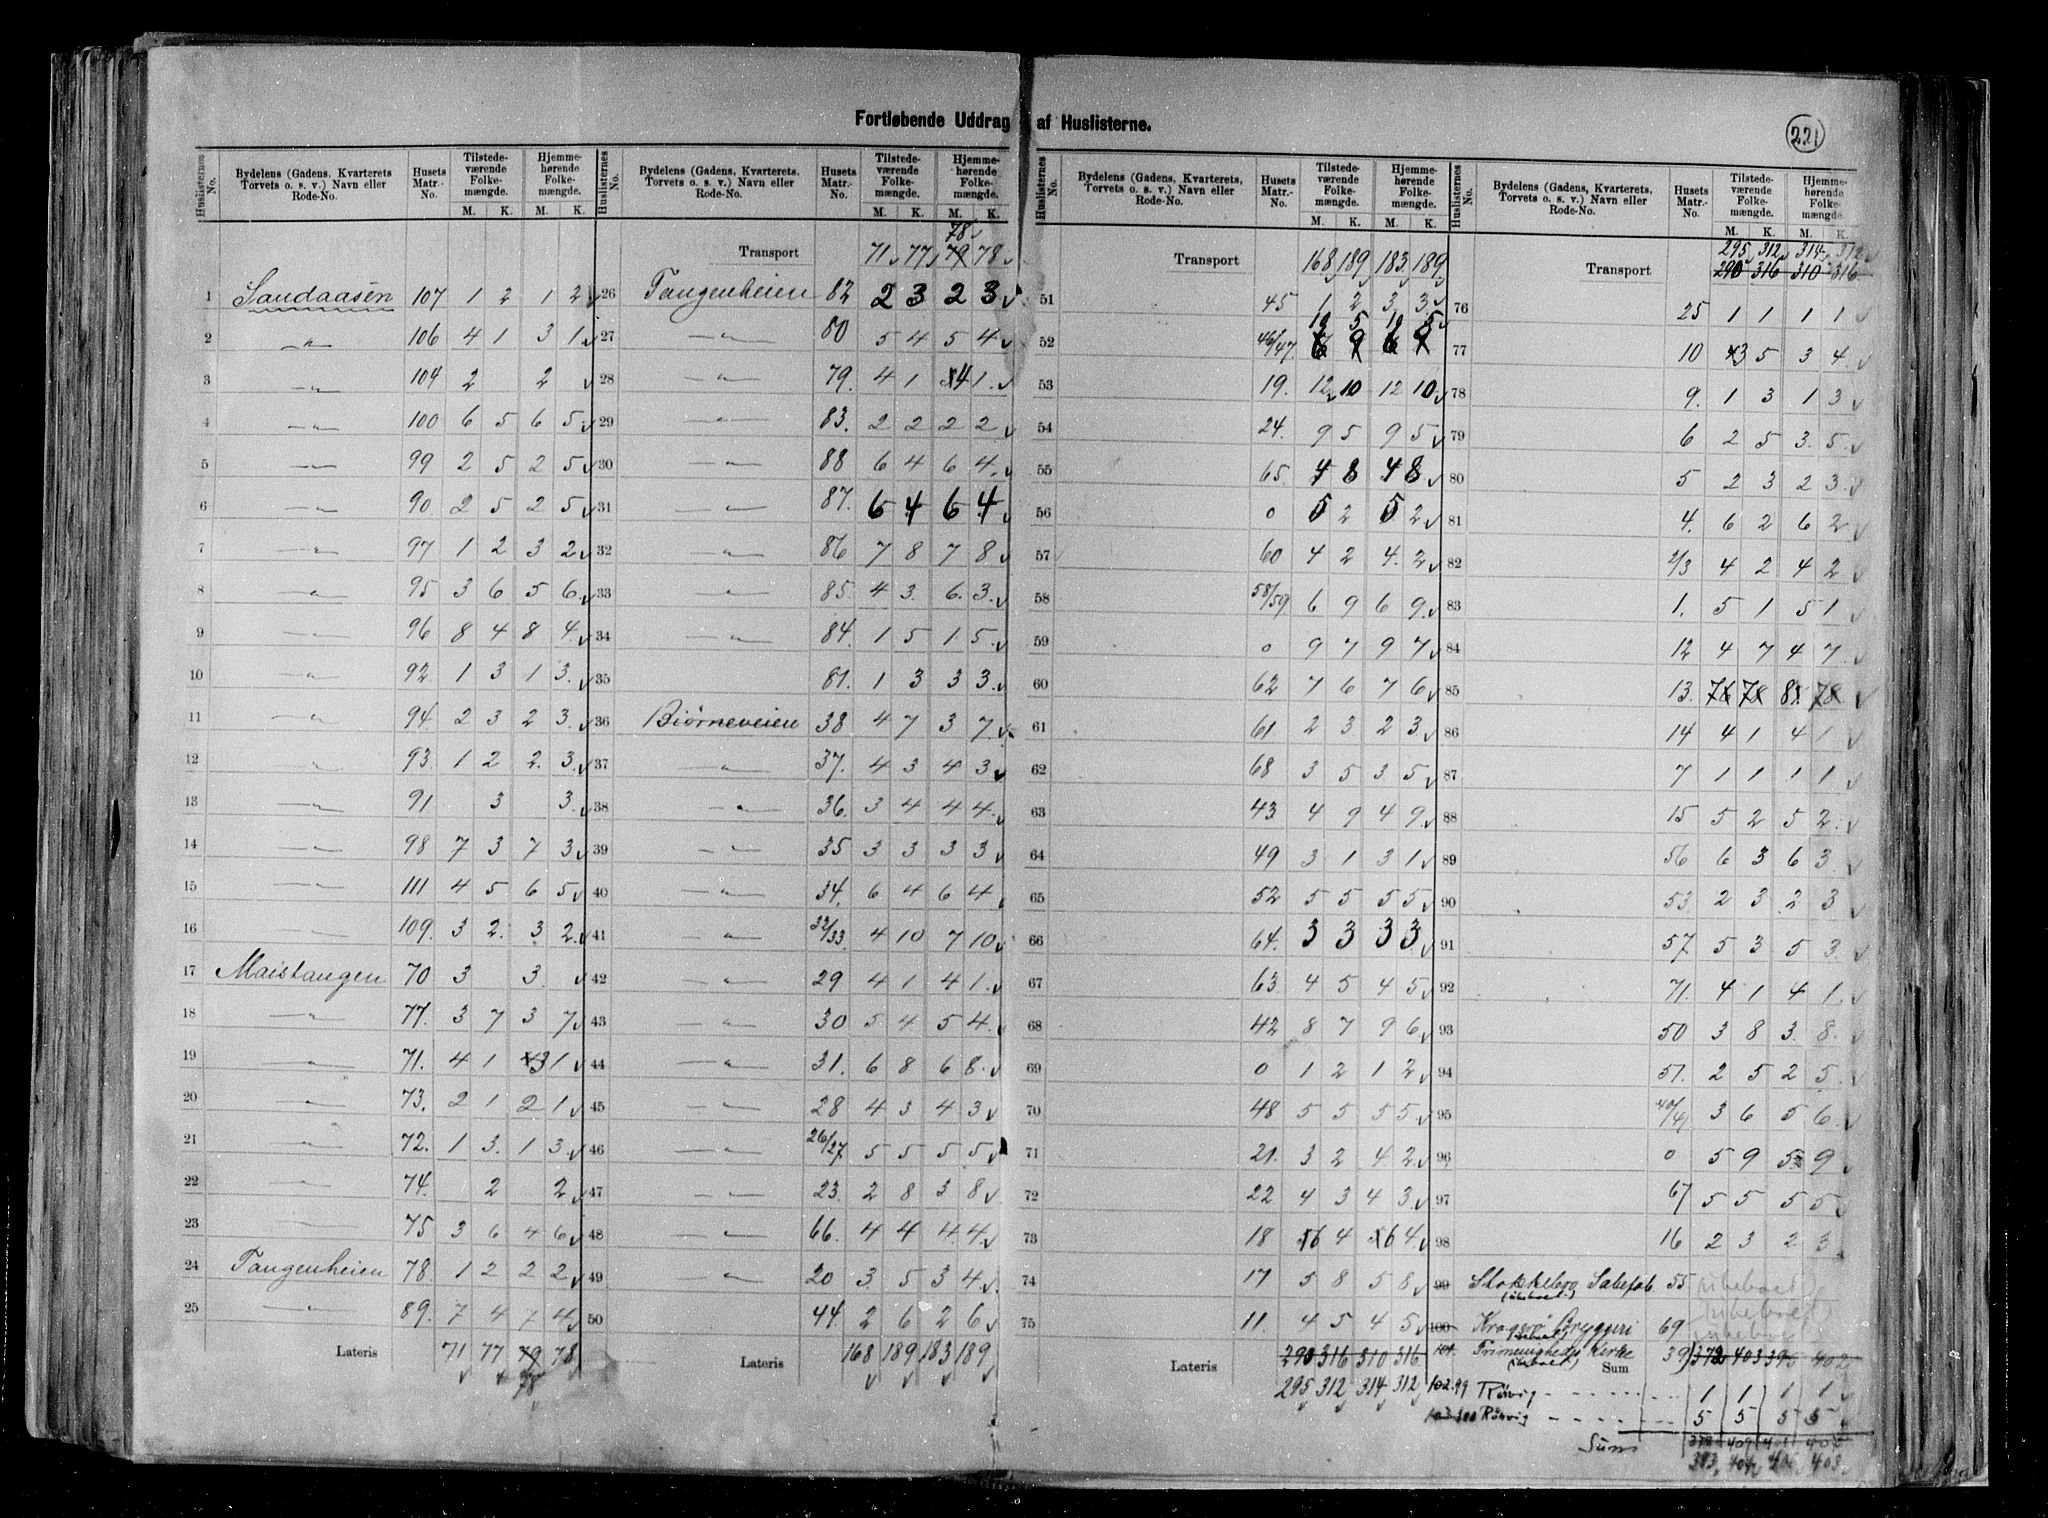 Fortløbende Uddrag af Huslisterne.
221
Huslisternes No. | Bydelens (Gadens, Kvarterets, Torvets o. s. v.) Navn eller Rode-No. | Husets Matr.-No. | Tilstedeværende Folkemængde. M. K. | Hjemmehørende Folkemængde. M. K.
1 Sandaasen 107 1 2 1 2
2 —"— 106 4 1 3 1
3 —"— 104 2 2
4 —"— 100 6 5 6 5
5 —"— 99 2 5 2 5
6 —"— 90 2 5 2 5
7 —"— 97 1 2 3 2
8 —"— 95 3 6 5 6
9 —"— 96 8 4 8 4
10 —"— 92 1 3 1 3
11 —"— 94 2 3 2 3
12 —"— 93 1 2 2 3
13 —"— 91 3 3
14 —"— 98 7 3 7 3
15 —"— 111 4 5 6 5
16 —"— 109 3 2 3 2
17 Maistangen 70 3 3
18 —"— 77 3 7 3 7
19 —"— 71 4 1 3 1
20 —"— 73 2 1 2 1
21 —"— 72 1 3 1 3
22 —"— 74 2 2
23 —"— 75 3 6 4 6
24 Tangenheien 78 1 2 2 2
25 —"— 89 7 4 7 4
Lateris 71 77 79 78
78
Huslisternes No. | Bydelens (Gadens, Kvarterets, Torvets o. s. v.) Navn eller Rode-No. | Husets Matr.-No. | Tilstedeværende Folkemængde. M. K. | Hjemmehørende Folkemængde. M. K.
78
Transport 71 77 79 78
26 Tangenheien 82 2 3 2 3
27 —"— 80 5 4 5 4
28 —"— 79 4 1 4 1
29 —"— 83 2 2 2 2
30 —"— 88 6 4 6 4
31 —"— 87 6 4 6 4
32 —"— 86 7 8 7 8
33 —"— 85 4 3 6 3
34 —"— 84 1 5 1 5
35 81 1 3 3 3
36 Biørneveien 38 4 7 3 7
37 —"— 37 4 3 4 3
38 —"— 36 3 4 4 4
39 —"— 35 3 3 3 3
40 —"— 34 6 4 6 4
41 —"— 32/33 4 10 7 10
42 —"— 29 4 1 4 1
43 —"— 30 5 4 5 4
44 —"— 31 6 8 6 8
45 —"— 28 4 3 4 3
46 —"— 26/27 5 5 5 5
47 —"— 23 2 8 3 8
48 —"— 66 4 4 4 4
49 —"— 20 3 5 3 4
50 44 2 6 2 6
Lateris 168 189 183 189
Huslisternes No. | Bydelens (Gadens, Kvarterets, Torvets o. s. v.) Navn eller Rode-No. | Husets Matr.-No. | Tilstedeværende Folkemængde. M. K. | Hjemmehørende Folkemængde. M. K.
Transport 168 189 183 189
51 45 1 2 3 3
10 5 10 5
52 46/47 6 9 6 9
53 19 12 10 12 10
54 24 9 5 9 5
55 65 4 8 4 8
56 0 5 2 5 2
57 60 4 2 4 2
58 58/59 6 9 6 9
59 0 9 7 9 7
60 62 7 6 7 6
61 61 2 3 2 3
62 68 3 5 3 5
63 43 4 9 4 9
64 49 3 1 3 1
65 52 5 5 5 5
66 64 3 3 3 3
67 63 4 5 4 5
68 42 8 7 9 6
69 0 1 2 1 2
70 48 5 5 5 5
71 21 3 2 4 2
72 22 4 3 4 3
73 18 6 4 6 4
74 17 5 8 5 8
75 11 4 5 4 5
Lateris 290 316 310 316
295 312 314 312
Huslisternes No. | Bydelens (Gadens, Kvarterets, Torvets o. s. v.) Navn eller Rode-No. | Husets Matr.-No. | Tilstedeværende Folkemængde. M. K. | Hjemmehørende Folkemængde. M. K.
295 312 314 312
Transport 290 316 310 316
76 25 1 1 1 1
77 10 3 5 3 4
78 9 1 3 1 3
79 6 2 5 3 5
80 5 2 3 2 3
81 4 6 2 6 2
82 2/3 4 2 4 2
83 1 5 1 5 1
84 12 4 7 4 7
85 13
86 14 4 1 4 1
87 7 1 1 1 1
88 15 5 2 5 2
89 56 6 3 6 3
90 53 2 3 2 3
91 57 5 3 5 3
92 71 4 1 4 1
93 50 3 8 3 8
94 51 2 5 2 5
95 40/41 3 6 5 6
96 0 5 9 5 9
97 67 5 5 5 5
98 16 2 3 2 3
99 55 ubeboet
100 Kragerø Bryggeri 69 ubeboet
101 Frimenigheds Kirke 39 372 403 395 402
(ubeboet) Sum
102 99 Rørvig 1 1 1 1
103 100 Rørvig 5 5 5 5
Sum
383 404 403